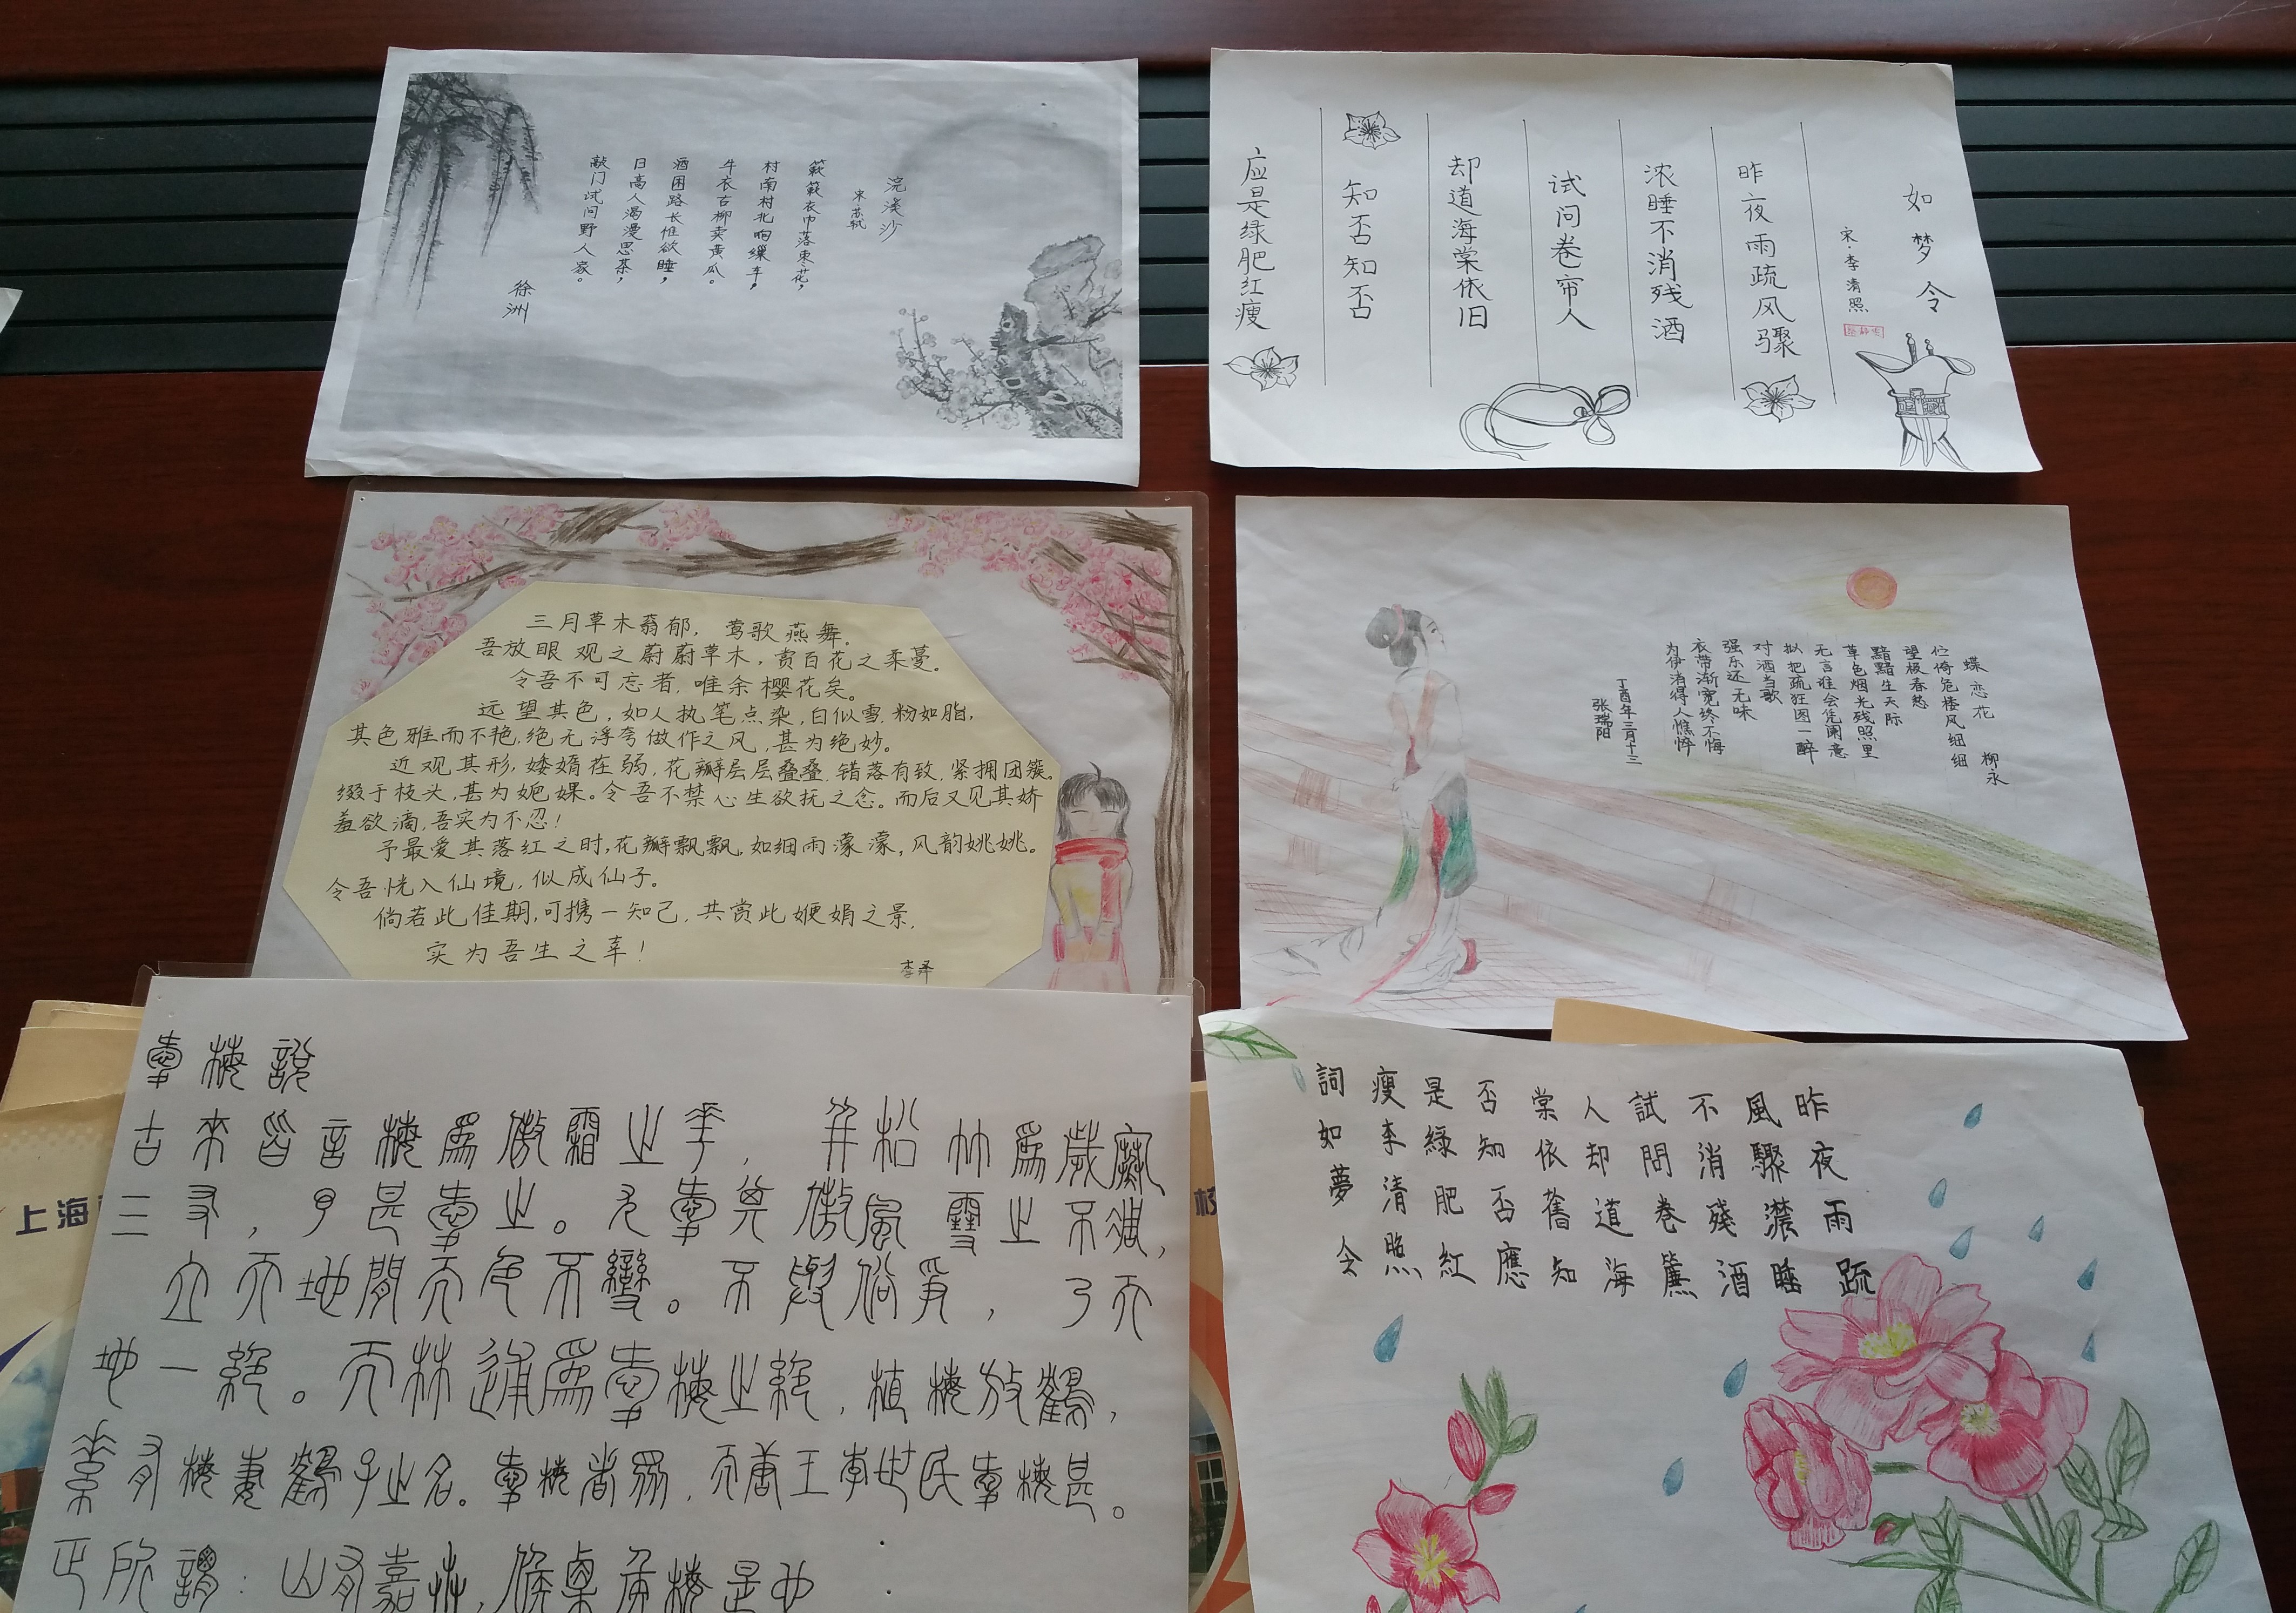 浣溪沙
宋 苏轼
簌簌衣巾落枣花，
村南村北响缫车，
牛衣古柳卖黄瓜。
酒困路长惟欲睡，
日高人渴漫思茶，
敲门试问野人家。
徐洲
如梦令
宋·李清照
昨夜雨疏风骤
浓睡不消残酒
试问卷帘人
却道海棠依旧
知否知否
应是绿肥红瘦
三月草木蓊郁，莺歌燕舞。
吾放眼观之蔚蔚草木，赏百花之柔蔓。
令吾不可忘者，唯余樱花矣。
远望其色，如人执笔点染，白似雪，粉如脂，
其色雅而不艳，绝无浮夸做作之风，甚为绝妙。
近观其形，婑媠荏弱，花瓣层层叠叠，错落有致，紧拥团簇。
缀于枝头，甚为婉婐。令吾不禁心生欲抚之念。而后又见其娇
羞欲滴，吾实为不忍！
予最爱其落红之时，花瓣飘飘，如细雨濛濛，风韵姚姚。
令吾恍入仙境，似成仙子。
倘若此佳期，可携一知己，共赏此婹娟之景，
实为吾生之幸！
李泽
蝶恋花
柳永
伫倚危楼风细细
望极春愁
黯黯生天际
草色烟光残照里
无言谁会凭阑意
拟把疏狂图一醉
对酒当歌
强乐还无味
衣带渐宽终不悔
为伊消得人憔悴
丁酉年三月十三
张瑞阳
爱梅說
古來皆言梅爲傲霜之華，并松竹爲歲寒
三友，予甚愛之。尤愛其傲風雪之不懼，
立天地間而色不變。不與俗爭，了天
地一絕。而林逋爲愛梅之絕，植梅放鶴，
素有梅妻鶴子之名。愛梅者眾，而唐王李世民愛梅甚。
正所謂：山有嘉卉，侯栗侯梅是也
昨夜雨疏
風驟濃睡
不消殘酒
試問卷簾
人却道海
棠依舊知
否知否應
是綠肥紅
瘦李清照
詞如夢令
上海
校